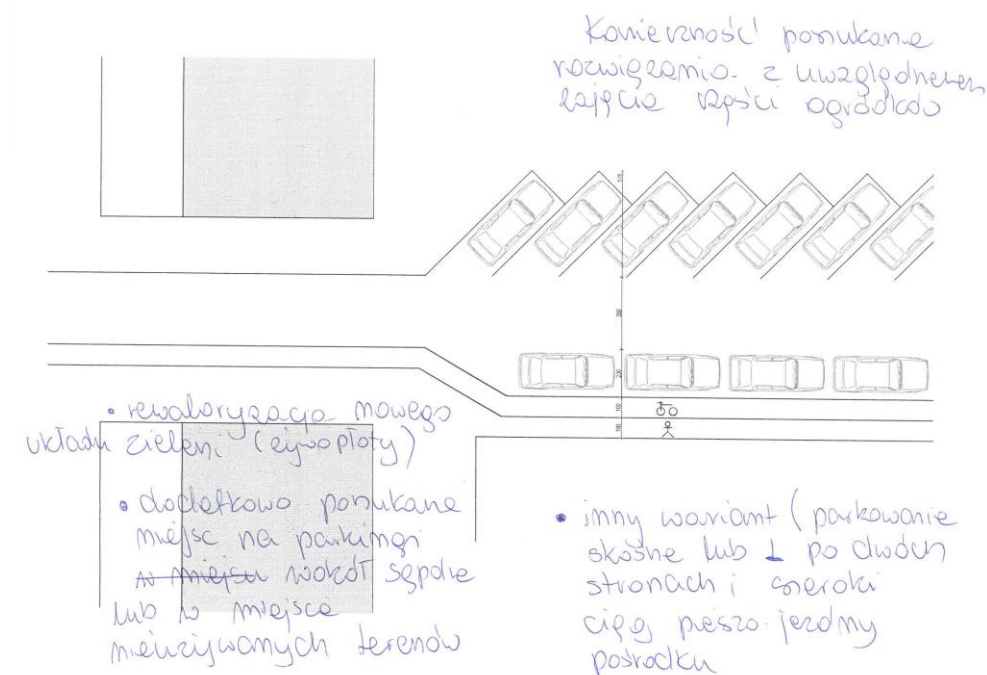 Konieczność poszukania
rozwiązania z uwzględnieniem
zajęcia części ogródków
510
350
200
100
100
• rewaloryzacja nowego
układu zieleni (żywopłoty)
• dodatkowo poszukanie
miejsc na parkingi
w miejscu wokół
lub w miejsce
nieużywanych terenów
• inny wariant (parkowanie
skośne lub ⊥ po dwóch
stronach i szeroki
ciąg pieszo-jezdny
pośrodku